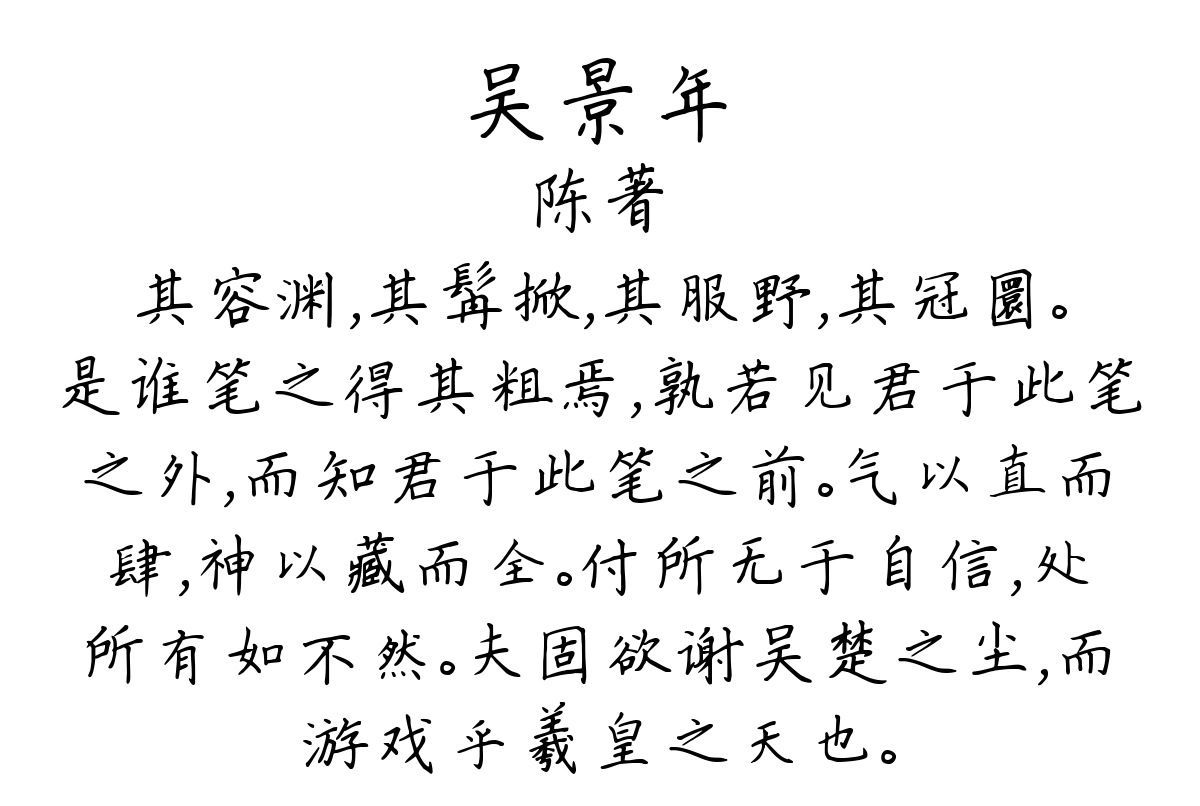 吴景年
陈著
其容渊,其髯掀,其服野,其冠圜。
是谁笔之得其粗焉,孰若见君于此笔
之外,而知君于此笔之前。气以直而
肆,神以藏而全。付所无于自信,处
所有如不然。夫固欲谢吴楚之尘,而
游戏乎羲皇之天也。